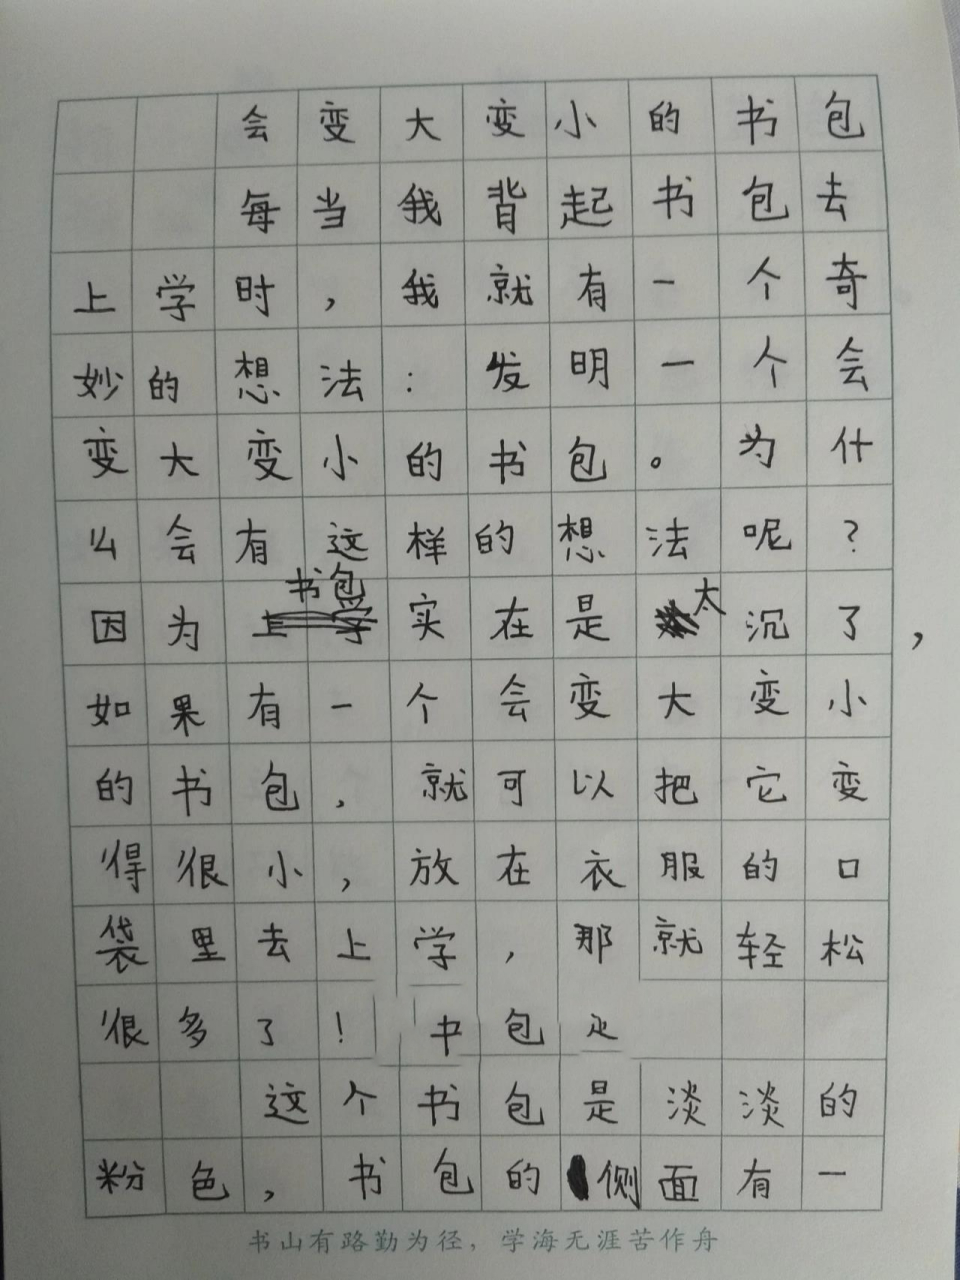 会变大变小的书包
每当我背起书包去
上学时，我就有一个奇
妙的想法：发明一个会
变大变小的书包。为什
么会有这样的想法呢？
因为书包实在是太沉了，
如果有一个会变大变小
的书包，就可以把它变
得很小，放在衣服的口
袋里去上学，那就轻松
很多了！
这个书包是淡淡的
粉色，书包的侧面有一
书山有路勤为径，学海无涯苦作舟